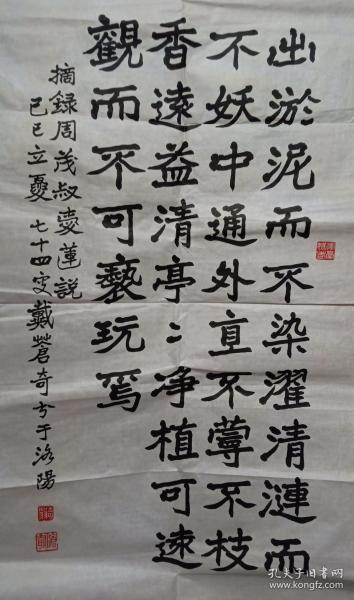 出淤泥而不染濯清漣而
不妖中通外直不蔓不枝
香遠益清亭〻净植可遠
觀而不可褻玩焉
摘録周茂叔愛蓮説
己巳立夏 七十四叟戴蒼奇书于洛陽
孔夫子旧书网